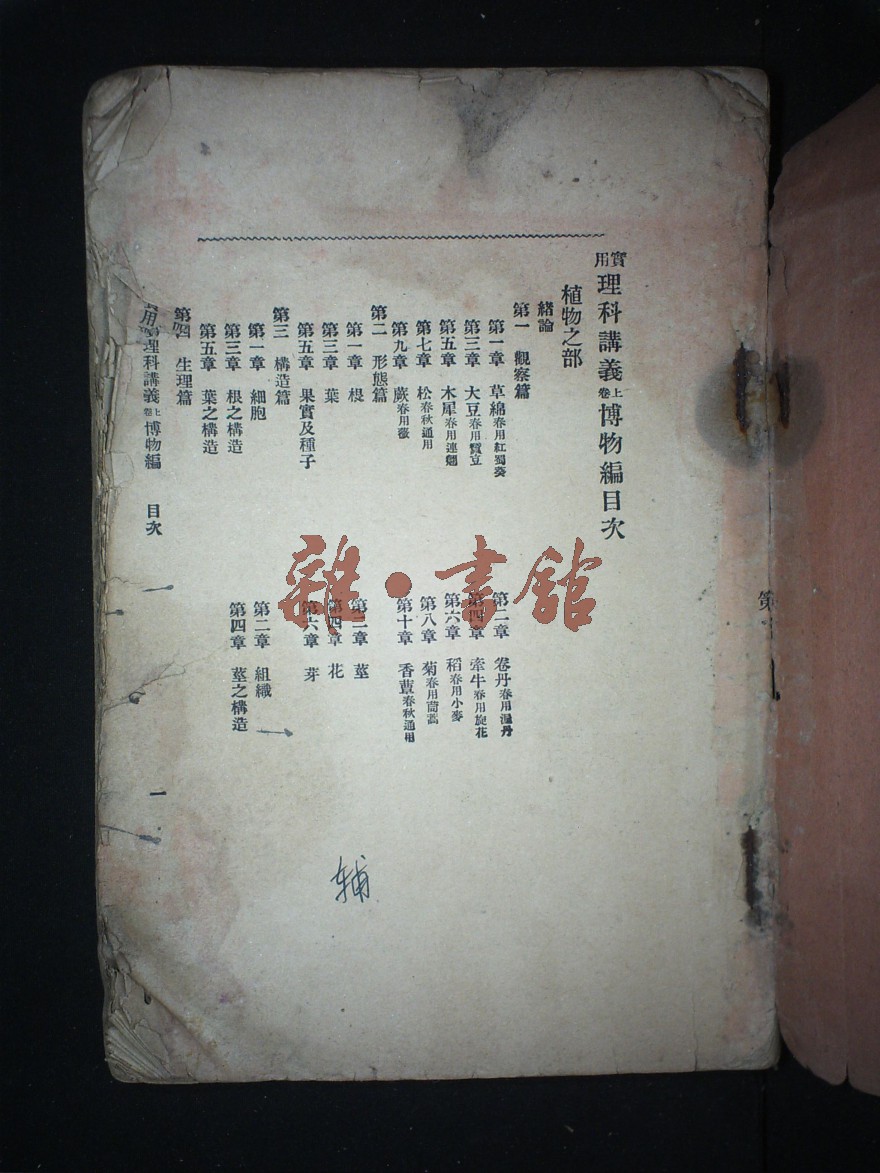 實用理科講義上卷博物編目次
植物之部
緒論
第一　觀察篇
第一章　草綿春用紅蜀葵
第二章　卷丹春用溫丹
第三章　大豆春用蠶豆
第四章　牽牛春用旋花
第五章　木犀春用連翹
第六章　稻春用小麥
第七章　松春秋通用
第八章　菊春用茼蒿
第九章　蕨春用薇
第十章　香蕈春秋通用
第二　形態篇
第一章　根
第二章　莖
第三章　葉
第四章　花
第五章　果實及種子
第六章　芽
第三　構造篇
第一章　細胞
第二章　組織
第三章　根之構造
第四章　莖之構造
第五章　葉之構造
第四　生理篇
實用理科講義上卷博物編　目次
一
輔
雜·書館
第